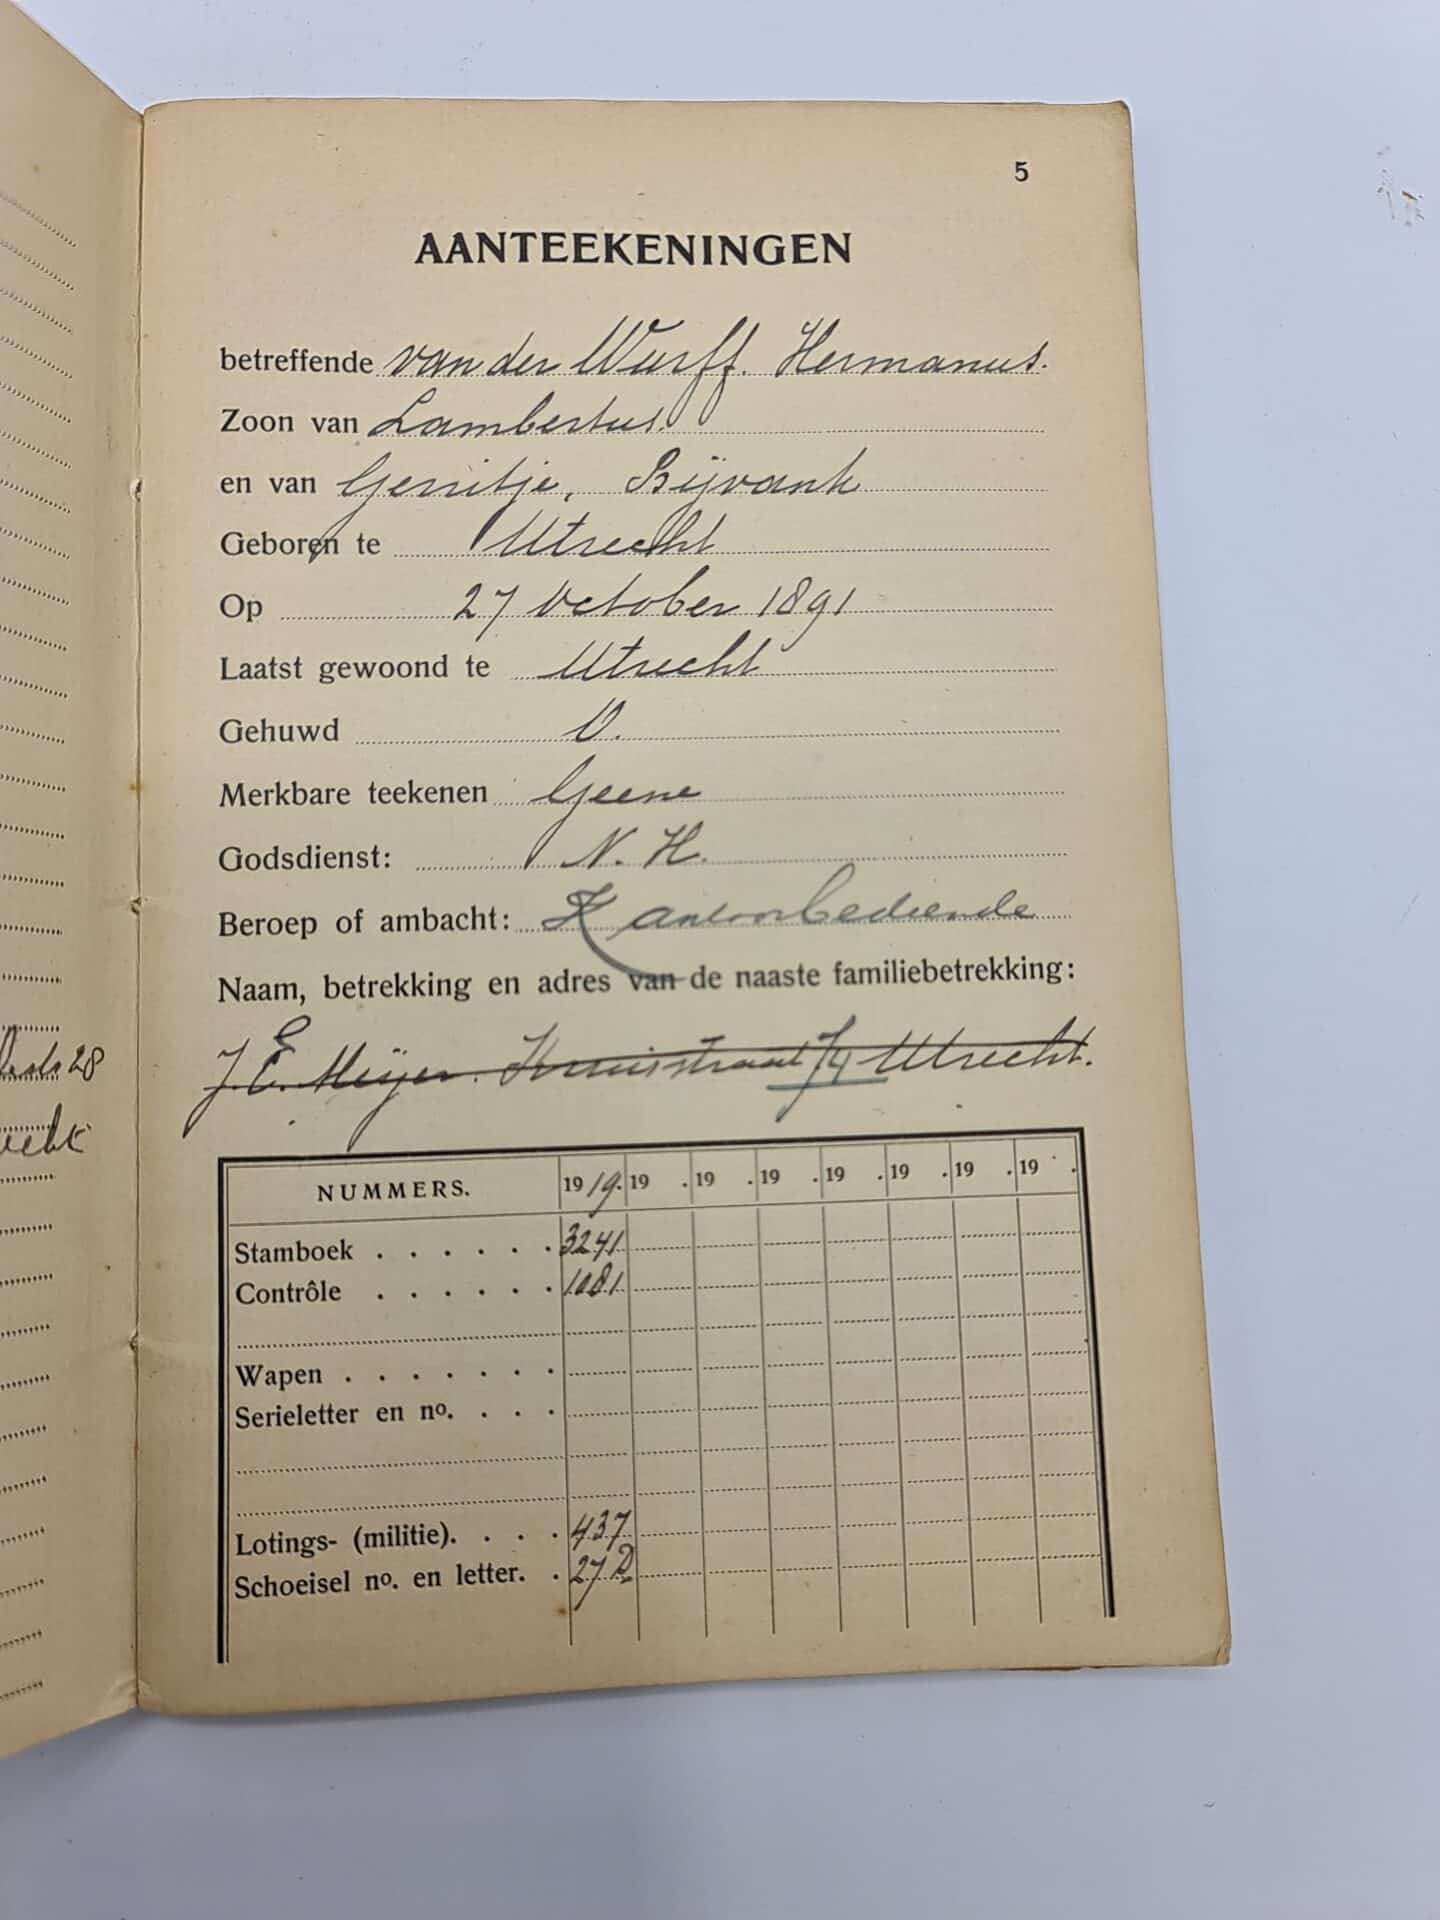 5
AANTEEKENINGEN
betreffende van der Wurff. Hermanus.
Zoon van Lambertus.
en van Gerritje, Bijvank
Geboren te Utrecht
Op 27 October 1891
Laatst gewoond te Utrecht
Gehuwd O.
Merkbare teekenen Geene
Godsdienst: N. H.
Beroep of ambacht: Kantoorbediende
Naam, betrekking en adres van de naaste familiebetrekking:
J. E. Meijer. Kruisstraat Utrecht.
28
NUMMERS. 1919. 19 . 19 . 19 . 19 . 19 . 19 . 19 .
Stamboek . . . . . . 3241
Contrôle . . . . . . 1081
Wapen . . . . . . .
Serieletter en no. . . .
Lotings- (militie). . . . 437
Schoeisel no. en letter. . 27 D